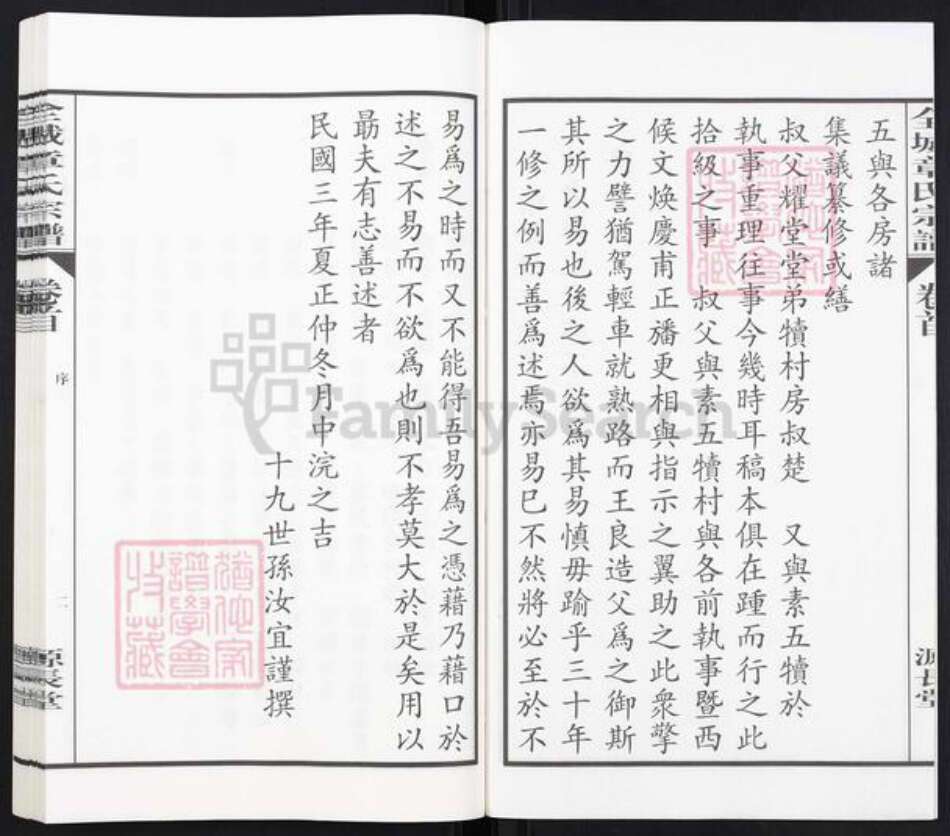 五與各房諸
集議纂修或繕
叔父耀堂堂弟犢村房叔楚　又與素五犢於
執事重理往事今幾時耳稿本俱在踵而行之此
拾級之事　叔父與素五犢村與各前執事暨西
候文煥慶甫正旙更相與指示之翼助之此衆擎
之力譬猶駕輕車就熟路而王良造父爲之御斯
其所以易也後之人欲爲其易慎毋踰乎三十年
一修之例而善爲述焉亦易巳不然將必至於不
易爲之時而又不能得吾易爲之憑藉乃藉口於
述之不易而不欲爲也則不孝莫大於是矣用以
勗夫有志善述者
民國三年夏正仲冬月中浣之吉
十九世孫汝宜謹撰
章氏宗譜
卷首
序
二
源長堂
FamilySearch